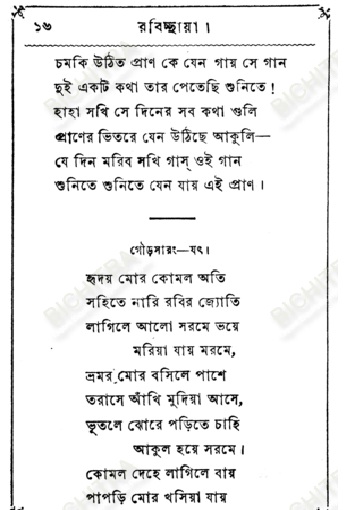 ১৬ রবিচ্ছায়া।
চমকি উঠিত প্রাণ কে যেন গায় সে গান
দুই একটি কথা তার পেতেছি শুনিতে!
হাহা সখি সে দিনের সব কথা গুলি
প্রাণের ভিতরে যেন উঠিছে আকুলি—
যে দিন মরিব সখি গাস্ ওই গান
শুনিতে শুনিতে যেন যায় এই প্রাণ।
গৌড়সারং—যৎ॥
হৃদয় মোর কোমল অতি
সহিতে নারি রবির জ্যোতি
লাগিলে আলো সরমে ভয়ে
মরিয়া যায় মরমে,
ভ্রমর মোর বসিলে পাশে
তরাসে আঁখি মুদিয়া আসে,
ভূতলে ঝোরে পড়িতে চাহি
আকুল হয়ে সরমে।
কোমল দেহে লাগিলে বায়
পাপড়ি মোর খসিয়া যায়
BICHITRA